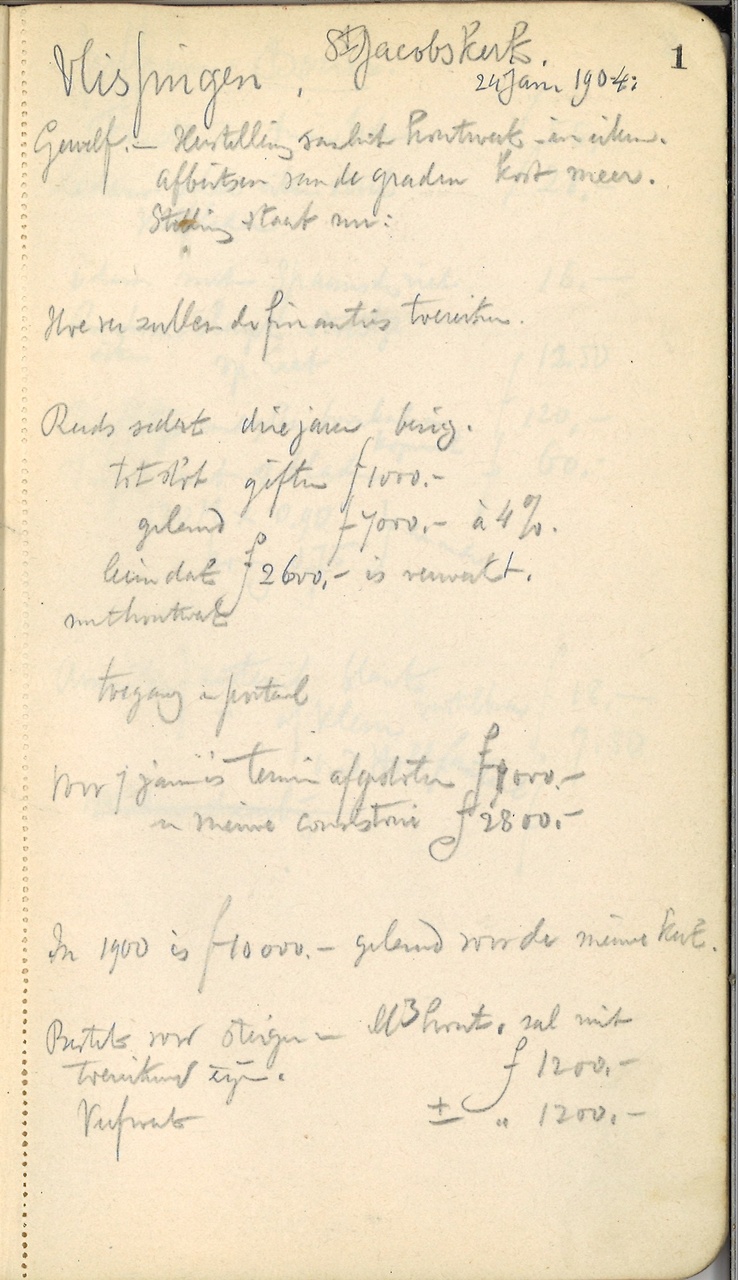 1
Vlissingen, St Jacobskerk.
24 Jan. 1904:
Gewelf. — Herstelling van het houtwerk in eiken.
afbeitsen van de graden kost meer.
Stelling staat nu:
Hoe ver zullen de financiës toereiken.
Reeds sedert drie jaren bezig.
tot slot giften f 1000.-
geleend f 7000.- à 4%.
f 2600,- is verwerkt.
met houtwerk
toegang portaal
Voor 1 termin f 1000.-
nieuwe consistorie f 2800.-
In 1900 is f 10000.- geleend voor de nieuwe kerk.
voor steiger M3 hout. zal niet
toereikend zijn. f 1200.-
Verfwerk ± „ 1200.-